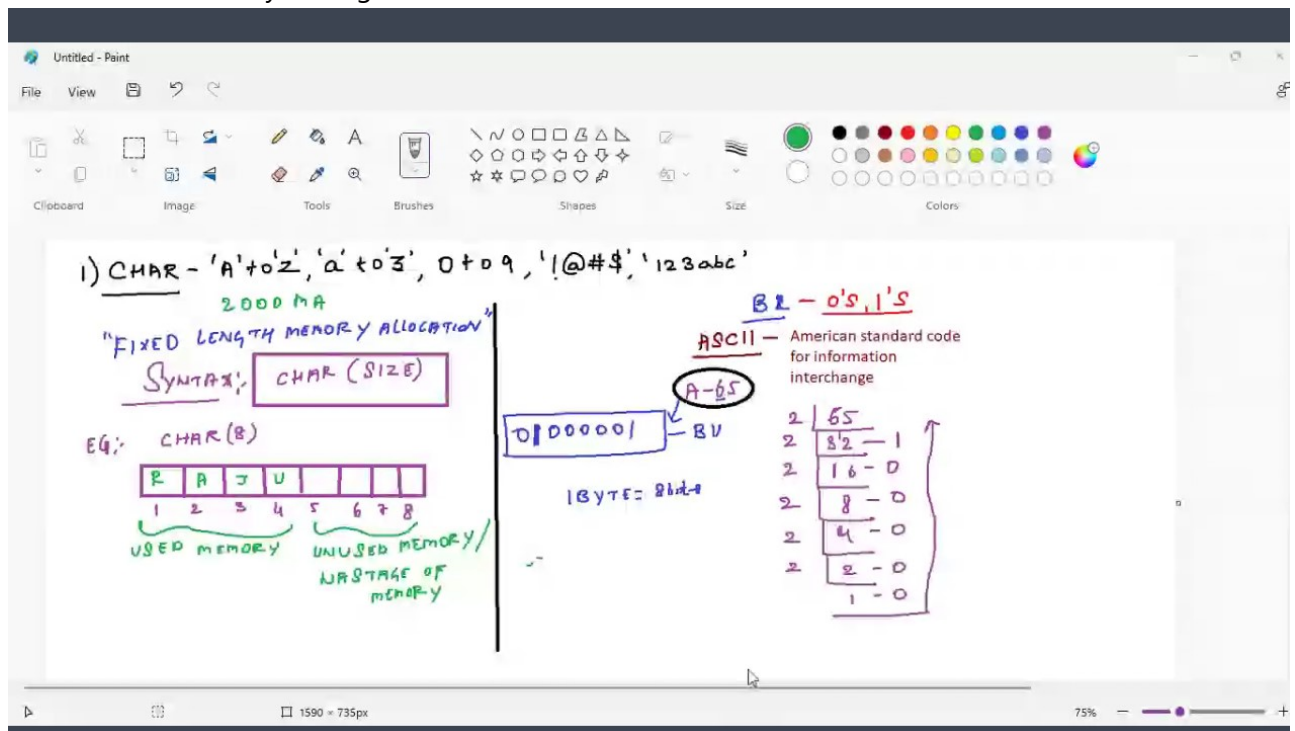 Untitled - Paint
File View
Clipboard Image Tools Brushes Shapes Size Colors
1) CHAR - 'A' to 'Z', 'a' to 'z', 0 to 9, '!@#$', '123abc'
2000 MA
"FIXED LENGTH MEMORY ALLOCATION"
SYNTAX:- CHAR (SIZE)
EG:- CHAR (8)
R A J U
1 2 3 4 5 6 7 8
USED MEMORY
UNUSED MEMORY/
WASTAGE OF
MEMORY
BL - 0'S, 1'S
ASCII - American standard code
for information
interchange
A-65
01000001 - BV
1BYTE = 8bits
2 65
2 32 - 1
2 16 - 0
2 8 - 0
2 4 - 0
2 2 - 0
1 - 0
1590 × 735px
75%